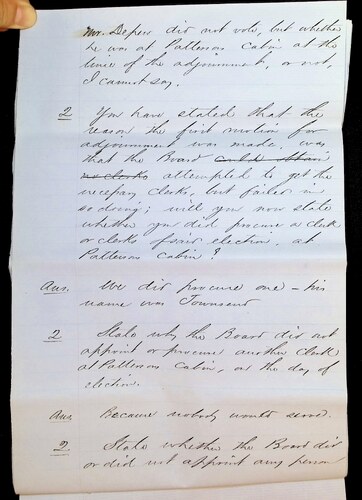 Mr. Depew did not vote, but whether
he was at Pattersons Cabin at the
time of the adjournment, or not,
I cannot say.
2 You have stated that the
reason the first motion for
adjournment was made, was
that the Board could obtain
no clerks attempted to get the
necessary Clerks, but failed in
so doing; will you now state
whether you did procure a clerk
or clerks of said election, at
Pattersons Cabin?
Ans. We did procure one – his
name was Townsend
2 State why the Board did not
appoint or procure another clerk
at Pattersons Cabin, on the day of
election.
Ans. Because nobody would serve.
2 State whether the Board did
or did not appoint any person